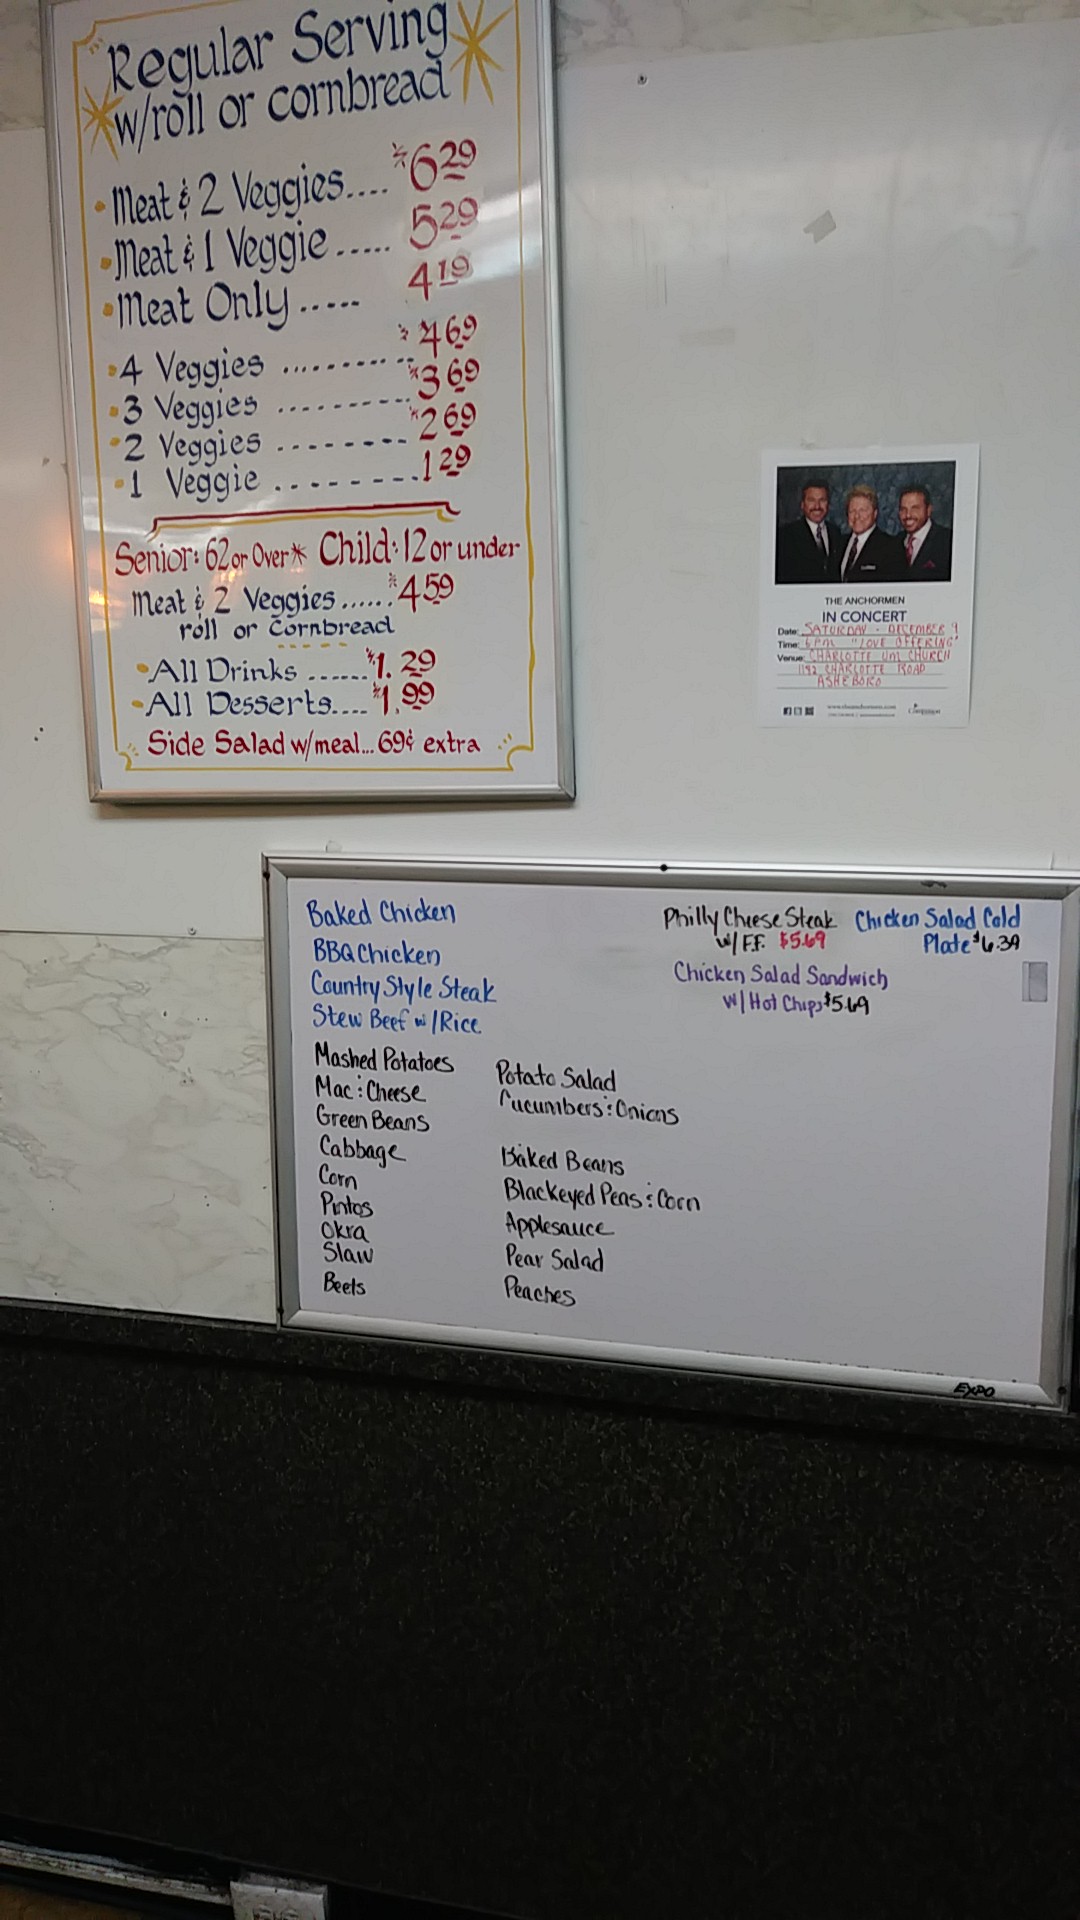 Regular Serving
w/roll or cornbread
• Meat & 2 Veggies.... $6 29
• Meat & 1 Veggie ..... 5 29
• Meat Only ..... 4 19
• 4 Veggies ........... $4 69
• 3 Veggies .......... $3 69
• 2 Veggies ........ $2 69
• 1 Veggie ......... 1 29
Senior: 62 or Over* Child: 12 or under
Meat & 2 Veggies...... $4 59
roll or cornbread
• All Drinks ....... $1.29
• All Desserts.... $1.99
Side Salad w/meal... 69¢ extra
THE ANCHORMEN
IN CONCERT
Date: SATURDAY - DECEMBER 9
Time: 6 PM "LOVE OFFERING"
Venue: CHARLOTTE UM CHURCH
CHARLOTTE ROAD
ASHEBORO
Baked Chicken
BBQ Chicken
Country Style Steak
Stew Beef w/Rice
Philly Cheese Steak
w/ F.F. $5.69
Chicken Salad Cold
Plate $6.39
Chicken Salad Sandwich
w/ Hot Chips $5.69
Mashed Potatoes
Mac & Cheese
Green Beans
Cabbage
Corn
Pintos
Okra
Slaw
Beets
Potato Salad
Cucumbers & Onions
Baked Beans
Blackeyed Peas & Corn
Applesauce
Pear Salad
Peaches
EXPO